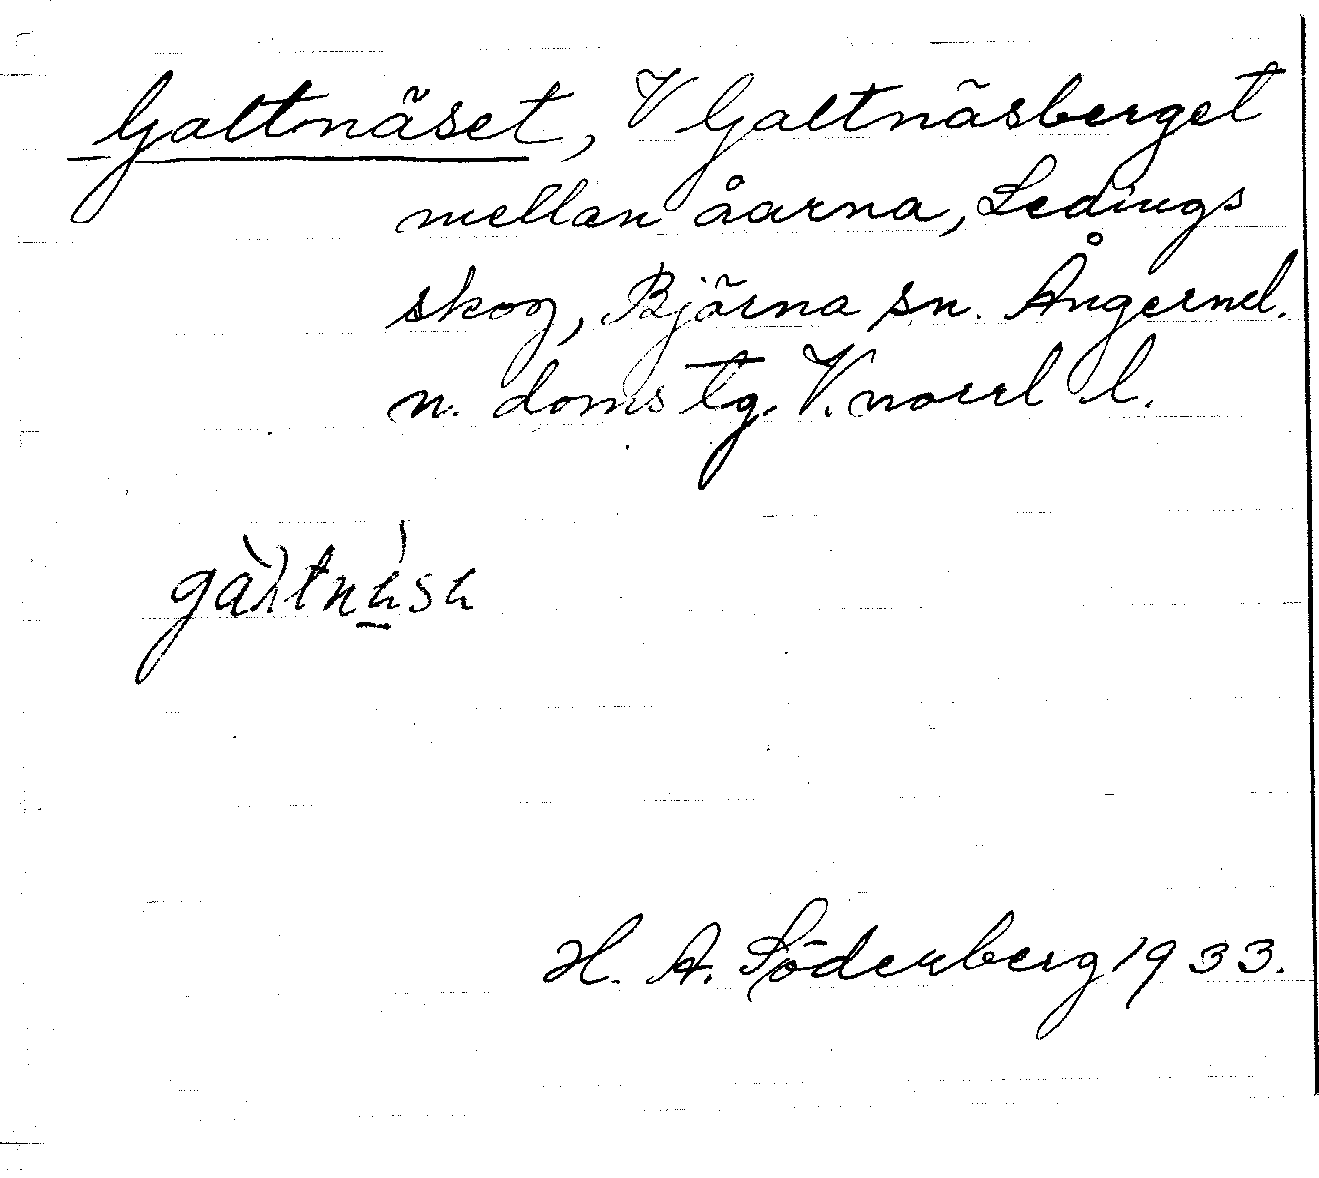 Galtnäset, V Galtnäsberget
mellan åarna, Ledings
skog, Björna sn. Ångerml.
n. doms tg. V. norrl l.
H. A. Söderberg 1933.